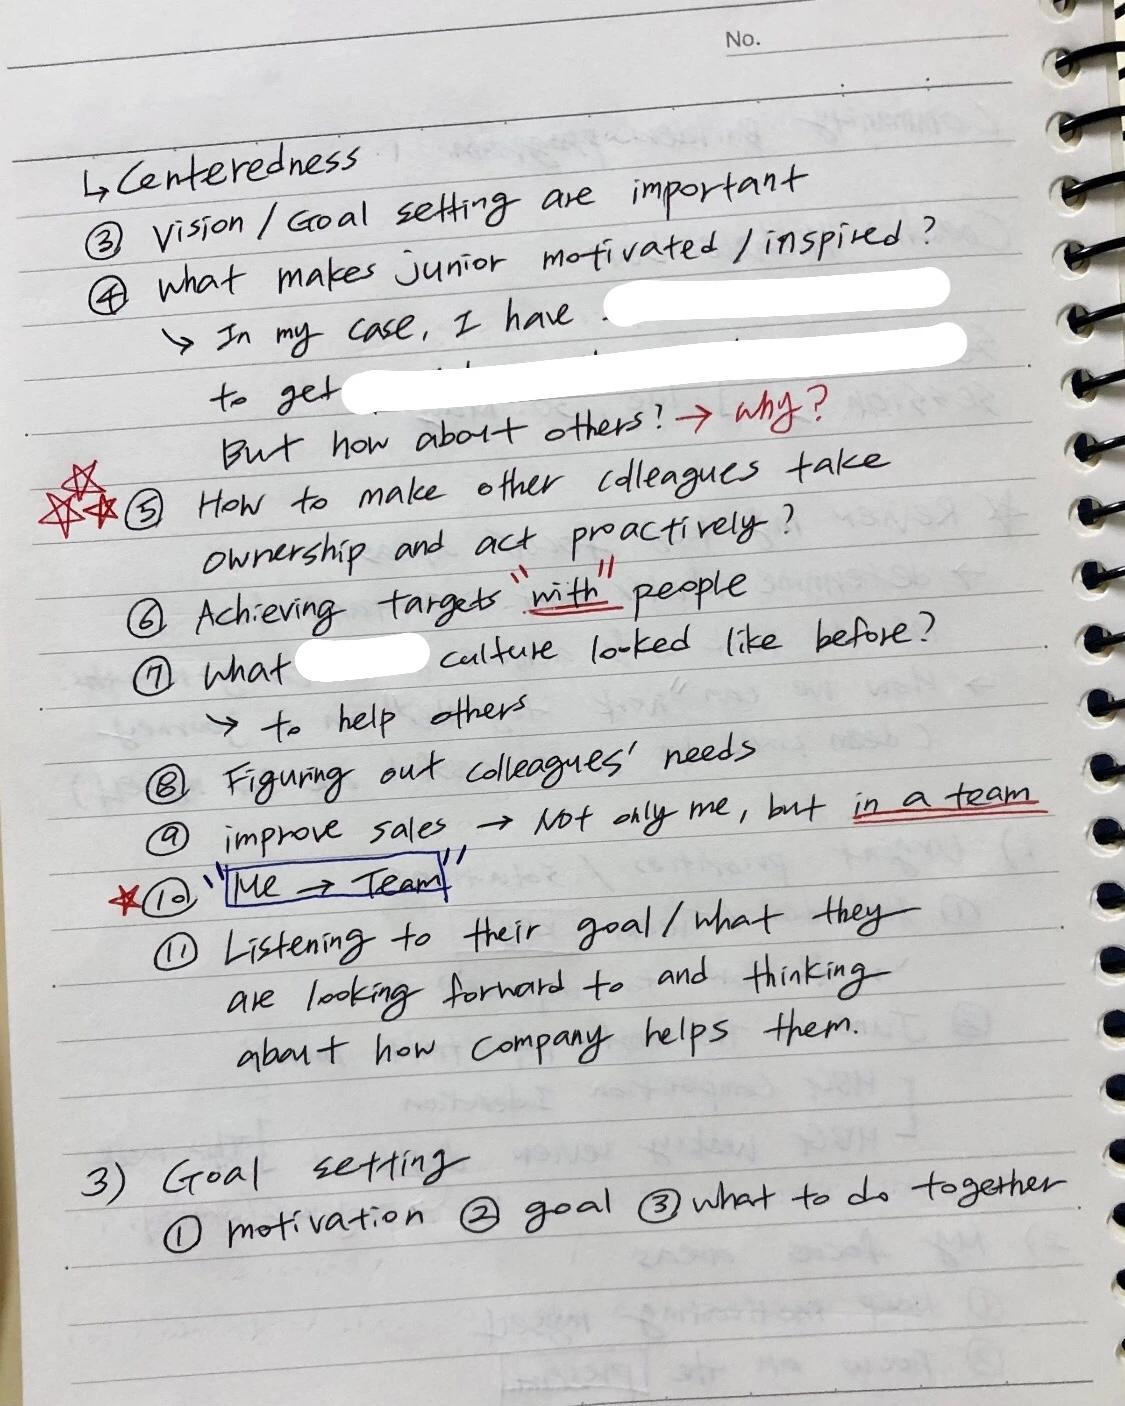 No.
↳ Centeredness
③ Vision / Goal setting are important
④ What makes junior motivated / inspired?
↳ In my case, I have
to get
But how about others? → why?
☆☆☆ ⑤ How to make other colleagues take
ownership and act proactively?
⑥ Achieving targets "with" people
⑦ What culture looked like before?
↳ to help others
⑧ Figuring out colleagues' needs
⑨ improve sales → Not only me, but in a team
☆ ⑩ "Me → Team"
⑪ Listening to their goal / what they
are looking forward to and thinking
about how company helps them.
3) Goal setting
① motivation ② goal ③ what to do together